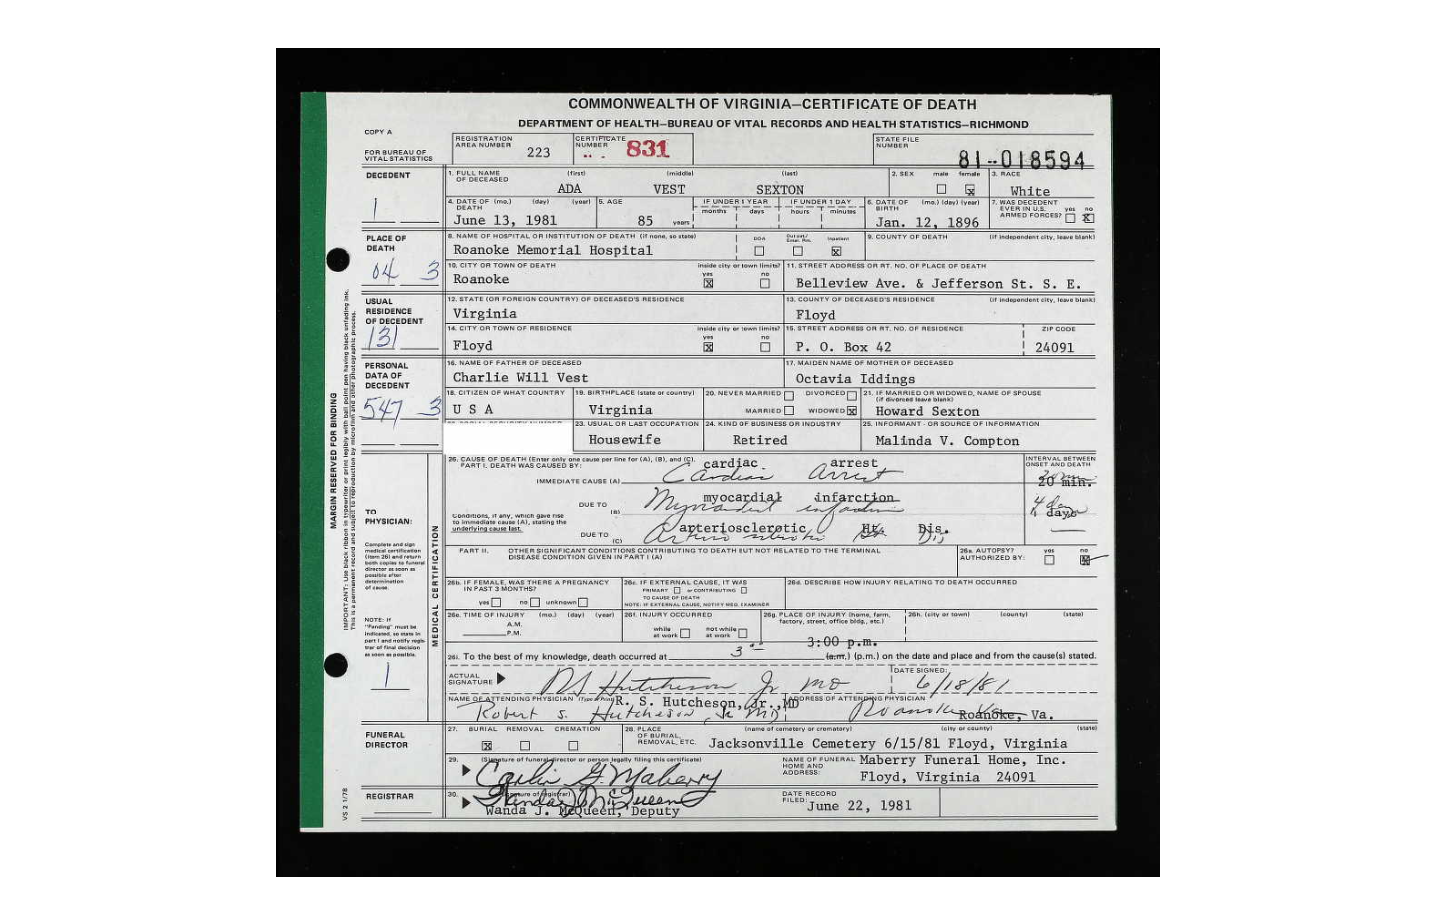 COMMONWEALTH OF VIRGINIA—CERTIFICATE OF DEATH
DEPARTMENT OF HEALTH—BUREAU OF VITAL RECORDS AND HEALTH STATISTICS—RICHMOND
COPY A
FOR BUREAU OF VITAL STATISTICS
REGISTRATION AREA NUMBER 223
CERTIFICATE NUMBER 831
STATE FILE NUMBER 81-018594
DECEDENT
1
1. FULL NAME OF DECEASED (first) (middle) (last)
ADA VEST SEXTON
2. SEX male female
3. RACE White
4. DATE OF DEATH (mo.) (day) (year) June 13, 1981
5. AGE 85 years
IF UNDER 1 YEAR months days
IF UNDER 1 DAY hours minutes
6. DATE OF BIRTH (mo.) (day) (year) Jan. 12, 1896
7. WAS DECEDENT EVER IN U.S. ARMED FORCES? yes no
PLACE OF DEATH
04 3
8. NAME OF HOSPITAL OR INSTITUTION OF DEATH (if none, so state)
Roanoke Memorial Hospital
DOA Inpatient
9. COUNTY OF DEATH (if independent city, leave blank)
10. CITY OR TOWN OF DEATH inside city or town limits? yes no
Roanoke
11. STREET ADDRESS OR RT. NO. OF PLACE OF DEATH
Belleview Ave. & Jefferson St. S. E.
USUAL RESIDENCE OF DECEDENT
131
12. STATE (OR FOREIGN COUNTRY) OF DECEASED'S RESIDENCE
Virginia
13. COUNTY OF DECEASED'S RESIDENCE (if independent city, leave blank)
Floyd
14. CITY OR TOWN OF RESIDENCE inside city or town limits? yes no
Floyd
15. STREET ADDRESS OR RT. NO. OF RESIDENCE
P. O. Box 42
ZIP CODE 24091
PERSONAL DATA OF DECEDENT
547 3
16. NAME OF FATHER OF DECEASED
Charlie Will Vest
17. MAIDEN NAME OF MOTHER OF DECEASED
Octavia Iddings
18. CITIZEN OF WHAT COUNTRY U S A
19. BIRTHPLACE (state or country) Virginia
20. NEVER MARRIED DIVORCED
MARRIED WIDOWED
21. IF MARRIED OR WIDOWED, NAME OF SPOUSE (if divorced leave blank)
Howard Sexton
23. USUAL OR LAST OCCUPATION Housewife
24. KIND OF BUSINESS OR INDUSTRY Retired
25. INFORMANT - OR SOURCE OF INFORMATION
Malinda V. Compton
MARGIN RESERVED FOR BINDING
IMPORTANT: Use black ribbon in typewriter or print legibly with ball point pen having black unfading ink.
This is a permanent record and subject to reproduction by microfilm and other photographic process.
TO PHYSICIAN:
Complete and sign medical certification (item 26) and return both copies to funeral director as soon as possible after determination of cause.
NOTE: If "Pending" must be indicated, so state in part I and notify registrar of final decision as soon as possible.
1
MEDICAL CERTIFICATION
26. CAUSE OF DEATH (Enter only one cause per line for (A), (B), and (C).
PART I. DEATH WAS CAUSED BY:
INTERVAL BETWEEN ONSET AND DEATH
IMMEDIATE CAUSE (A) cardiac arrest
Cardiac Arrest
20 min.
DUE TO (B) myocardial infarction
Myocardial infarction
4 days
Conditions, if any, which gave rise to immediate cause (A), stating the underlying cause last.
DUE TO (C) arteriosclerotic Ht. Dis.
PART II. OTHER SIGNIFICANT CONDITIONS CONTRIBUTING TO DEATH BUT NOT RELATED TO THE TERMINAL DISEASE CONDITION GIVEN IN PART I (A)
26a. AUTOPSY? AUTHORIZED BY: yes no
26b. IF FEMALE, WAS THERE A PREGNANCY IN PAST 3 MONTHS?
yes no unknown
26c. IF EXTERNAL CAUSE, IT WAS
PRIMARY or CONTRIBUTING
TO CAUSE OF DEATH
NOTE: IF EXTERNAL CAUSE, NOTIFY MED. EXAMINER
26d. DESCRIBE HOW INJURY RELATING TO DEATH OCCURRED
26e. TIME OF INJURY (mo.) (day) (year)
A.M.
P.M.
26f. INJURY OCCURRED
while at work not while at work
26g. PLACE OF INJURY (home, farm, factory, street, office bldg., etc.)
26h. (city or town) (county) (state)
3:00 p.m.
26i. To the best of my knowledge, death occurred at 3 (a.m.) (p.m.) on the date and place and from the cause(s) stated.
ACTUAL SIGNATURE RS Hutcheson Jr MD
DATE SIGNED: 6/18/81
NAME OF ATTENDING PHYSICIAN (Type or Print) R. S. Hutcheson, Jr., MD
Robert S. Hutcheson Jr MD
ADDRESS OF ATTENDING PHYSICIAN
Roanoke Va. Roanoke, Va.
FUNERAL DIRECTOR
27. BURIAL REMOVAL CREMATION
28. PLACE OF BURIAL, REMOVAL, ETC. (name of cemetery or crematory) (city or county) (state)
Jacksonville Cemetery 6/15/81 Floyd, Virginia
29. (Signature of funeral director or person legally filing this certificate)
Carlin G. Maberry
NAME OF FUNERAL HOME AND ADDRESS: Maberry Funeral Home, Inc.
Floyd, Virginia 24091
REGISTRAR
30. (Signature of registrar)
Wanda J. McQueen
Wanda J. McQueen, Deputy
DATE RECORD FILED: June 22, 1981
VS 2 1/78